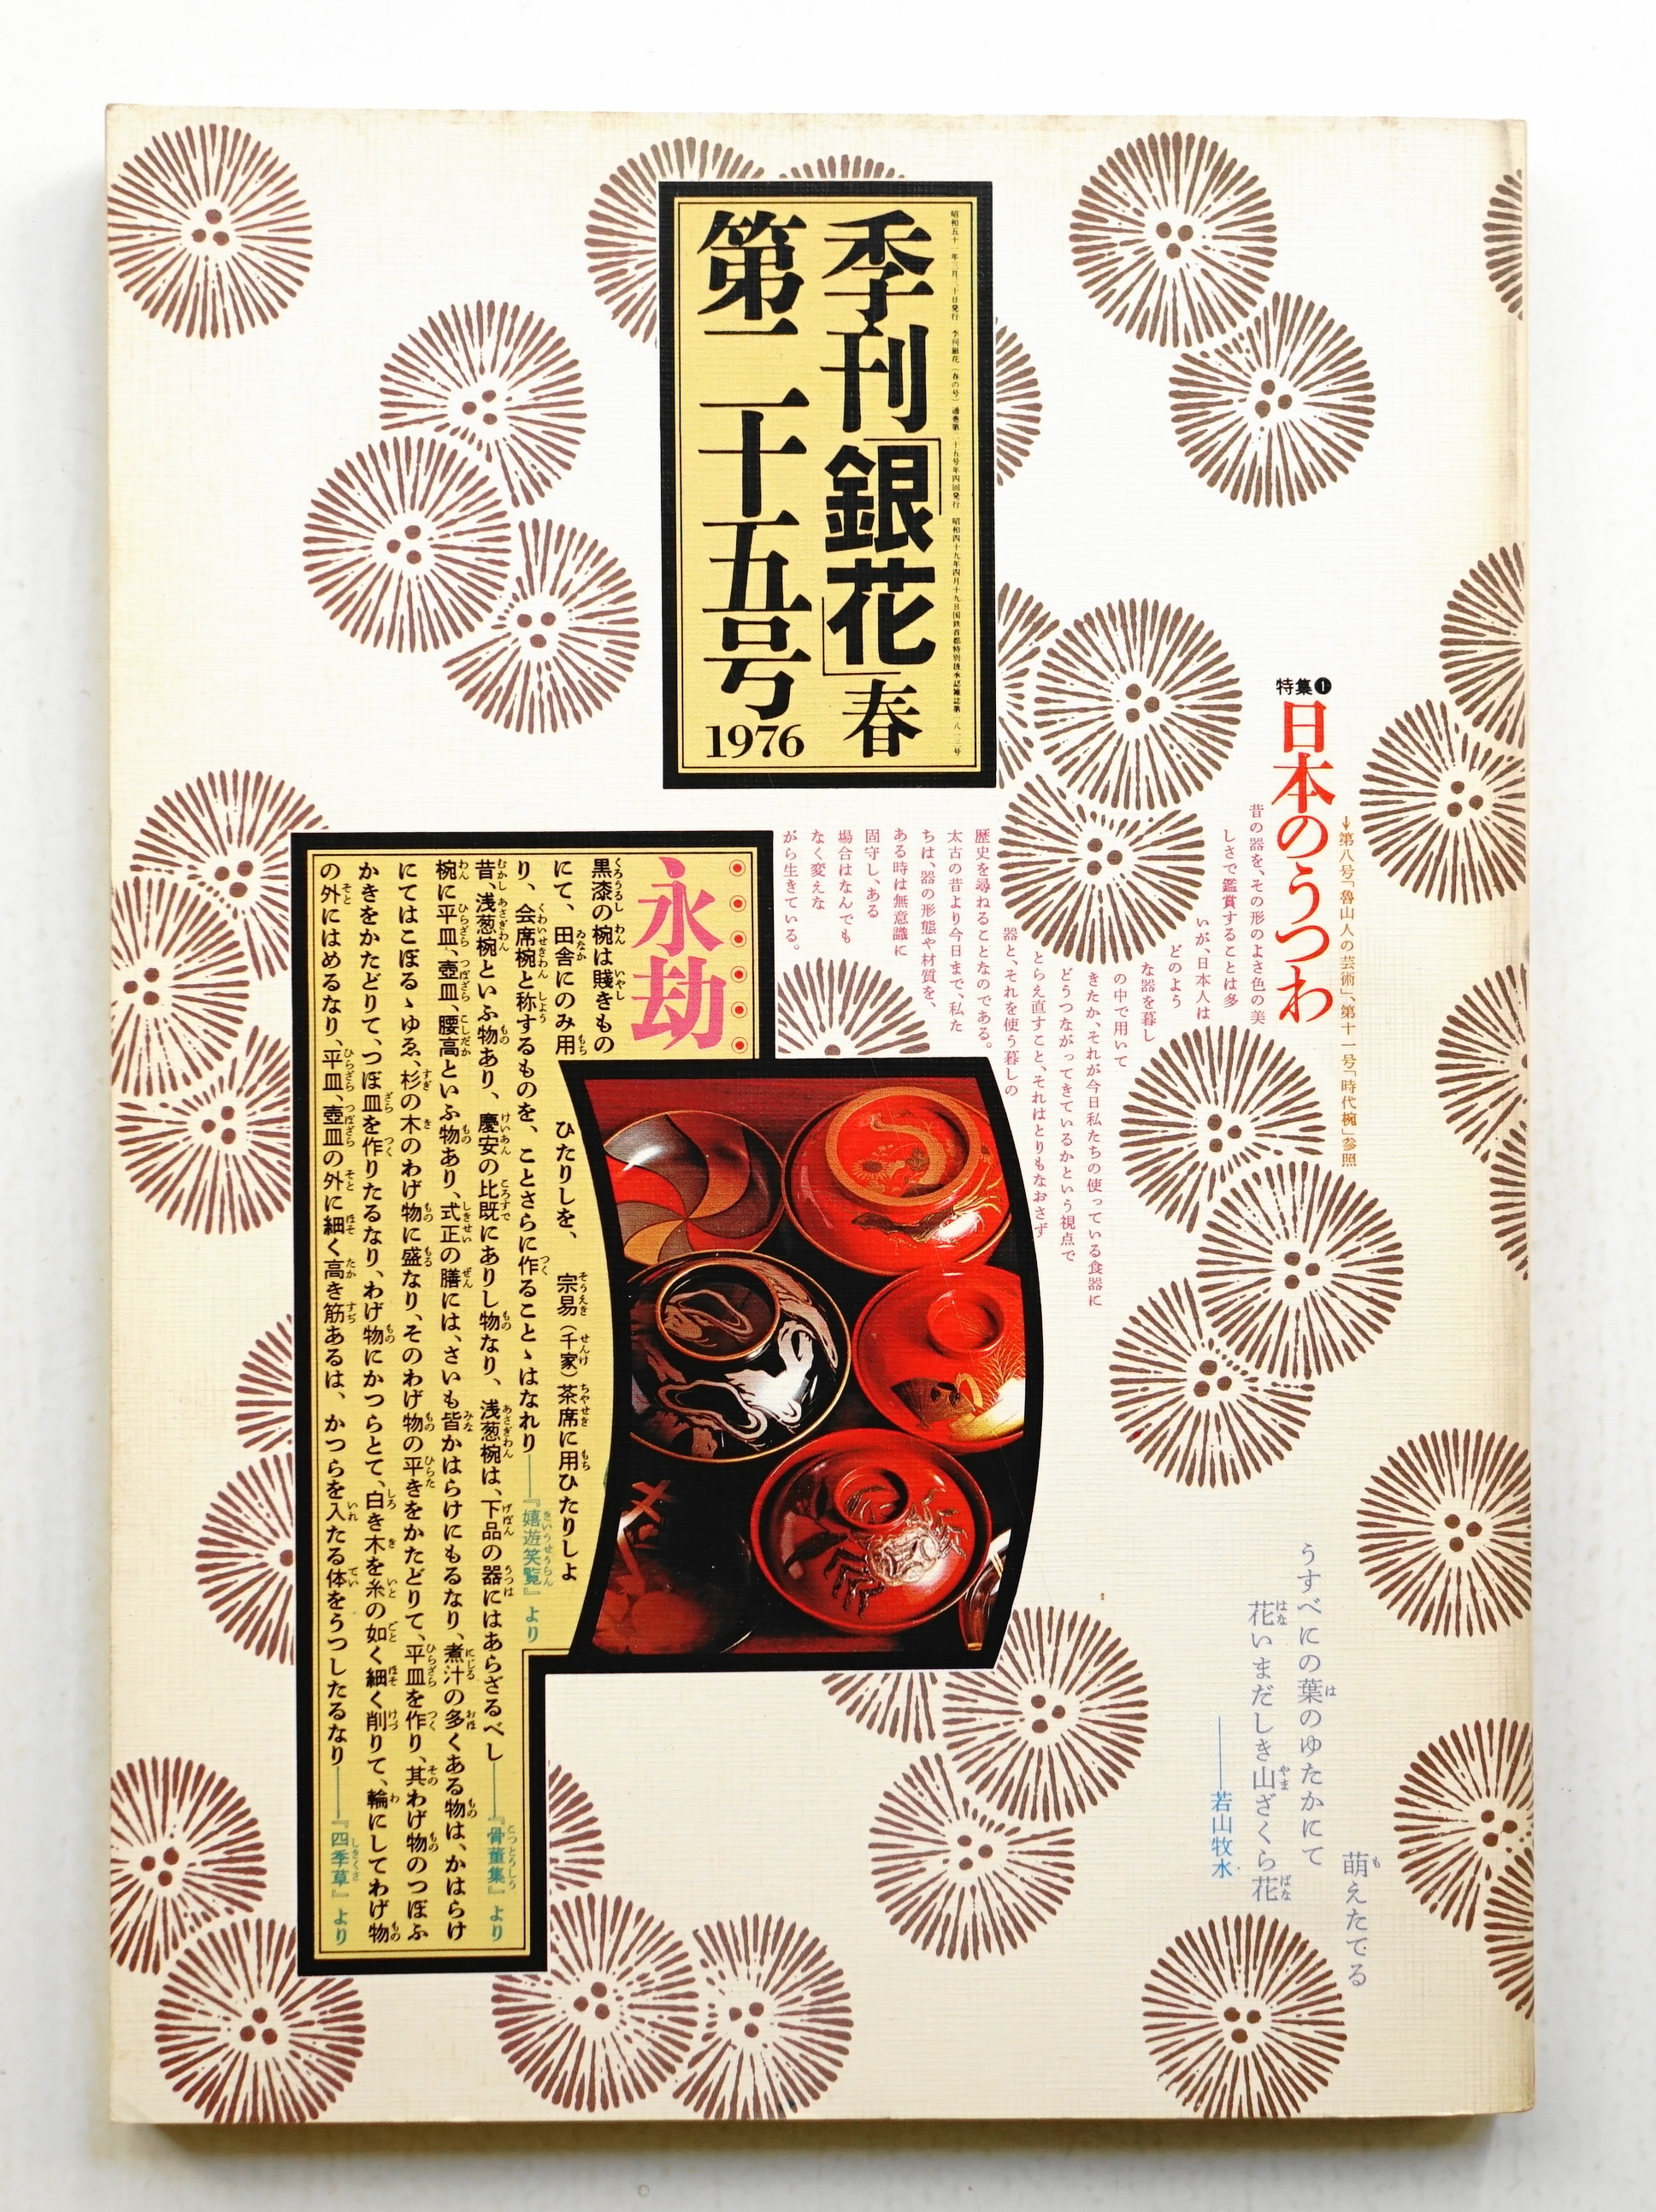 昭和五十一年三月三十日発行 季刊銀花(春の号)通巻第二十五号年四回発行 昭和四十九年四月十九日国鉄首都特別扱承認雑誌第一八一三号
季刊「銀花」春
第二十五号
1976
特集❶
日本のうつわ
↓第八号「魯山人の芸術」、第十一号「時代椀」参照
昔の器を、その形のよさ色の美
しさで鑑賞することは多
いが、日本人は
どのよう
な器を暮し
の中で用いて
きたか、それが今日私たちの使っている食器に
どうつながってきているかという視点で
とらえ直すこと、それはとりもなおさず
器と、それを使う暮しの
歴史を尋ねることなのである。
太古の昔より今日まで、私た
ちは、器の形態や材質を、
ある時は無意識に
固守し、ある
場合はなんでも
なく変えな
がら生きている。
永劫
黒漆の椀は賤きもの
にて、田舎にのみ用
ひたりしを、宗易(千家)茶席に用ひたりしよ
り、会席椀と称するものを、ことさらに作ることゝはなれり——『嬉遊笑覧』より
昔、浅葱椀といふ物あり、慶安の比既にありし物なり、浅葱椀は、下品の器にはあらざるべし——『骨董集』より
椀に平皿、壺皿、腰高といふ物あり、式正の膳には、さいも皆かはらけにもるなり、煮汁の多くある物は、かはらけ
にてはこぼるゝゆゑ、杉の木のわげ物に盛なり、そのわげ物の平きをかたどりて、平皿を作り、其わげ物のつぼふ
かきをかたどりて、つぼ皿を作りたるなり、わげ物にかつらとて、白き木を糸の如く細く削りて、輪にしてわげ物
の外にはめるなり、平皿、壺皿の外に細く高き筋あるは、かつらを入たる体をうつしたるなり——『四季草』より
うすべにの葉のゆたかにて
萌えたてる
花いまだしき山ざくら花
——若山牧水